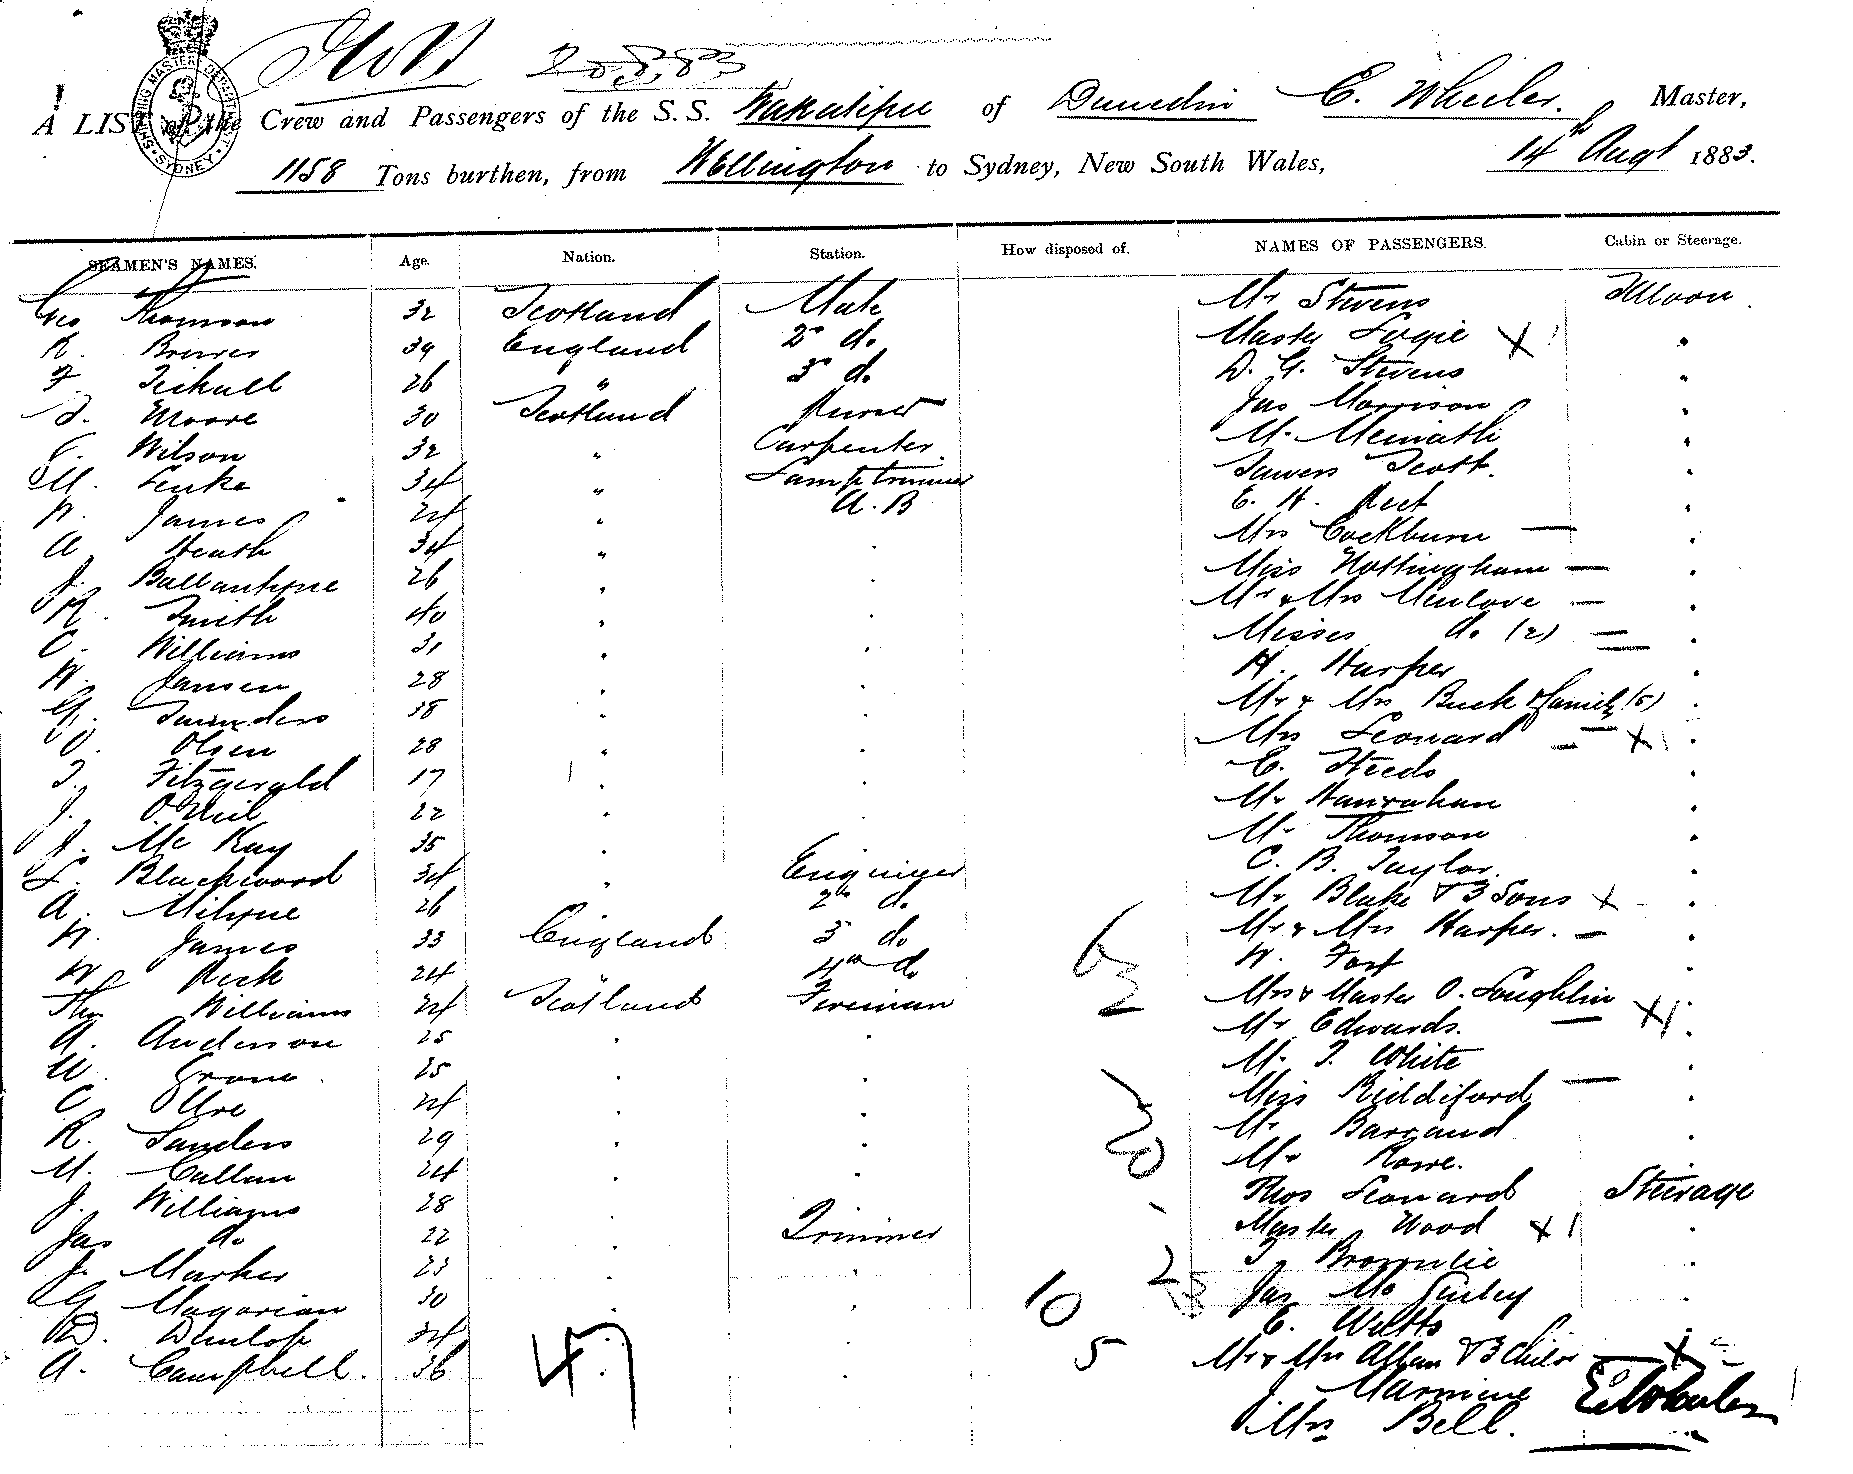 20.8.83
A LIST of the Crew and Passengers of the S.S. Wakatipu of Dunedin E. Wheeler. Master,
1158 Tons burthen, from Wellington to Sydney, New South Wales, 14th Augt 1883.
SEAMEN'S NAMES. Age. Nation. Station. How disposed of. NAMES OF PASSENGERS. Cabin or Steerage.
Geo Thomson 32 Scotland Mate Mr Stevens Saloon
R. 39 England 2nd do. Master Logie X
F. 26 " 3rd do. D. G. Stevens
T. Moore 30 Scotland Purser Jas Morrison
Wilson 32 " Carpenter Mr
M. 34 " Lamptrimmer Scott
W. James 24 " A.B E. H.
A. Heath 34 " Mrs Cockburn —
J. Ballantyne 26 Miss Nottingham —
R. Smith 40 Mr & Mrs Menlove —
C. Williams 31 Misses do. (2) —
W. Jansen 28 H. Harper
G. Saunders 38 Mr & Mrs Buck & family (5)
O. Olsen 28 " Mrs Leonard — X
T. Fitzgerald 17 C. Steeds
J. O'Neil 22 Mr Hanrahan
J. McKay 35 Mr Thomson
L. Blackwood 34 Engineer C. B. Taylor
A. Milyne 26 2nd do. Mr Blake & 3 Sons X
W. James 33 England 3rd do. Mr & Mrs Harper. —
W. 24 " 4th do. W.
Thos Williams 24 Scotland Fireman Mrs & Master O. Loughlin
A. Anderson 25 Mr Edwards.
25 Mr T. White
C. Ure 24 Miss Riddiford —
R. Sanders 29 Mr Barraud
M. Callum 24 Mr Rowe.
J. Williams 28 Thos Leonard Steerage
Jas do. 22 Trimmer Master Wood X
J. Marker 23 T. Brownlie
G. Magorian 30 Jas
D. Dunlop 34 E.
A. Campbell. 36 Mr & Mrs Allan & 3 Childn
47 10 5
Mrs Bell.
E. Wheeler